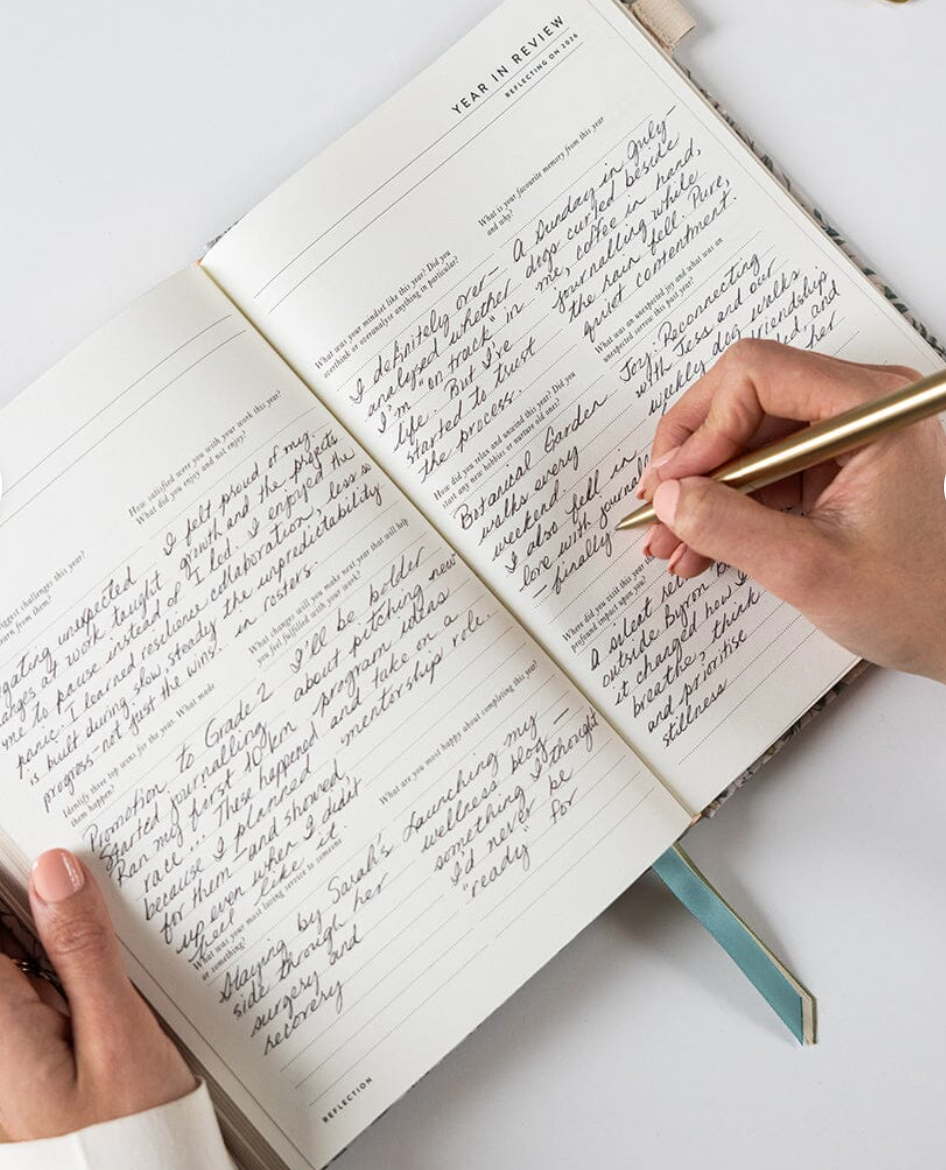 YEAR IN REVIEW
REFLECTING ON 2026
What is your favourite memory from this year
and why?
A Sunday in July—
dogs curled beside
me, coffee in hand,
journalling while
the rain fell. Pure,
quiet contentment.
What was your mindset like this year? Did you
overthink or overanalyse anything in particular?
I definitely over—
analysed whether
I'm "on track" in
life. But I've
started to trust
the process.
What was an unexpected joy and what was an
unexpected sorrow this past year?
Joy: Reconnecting
with Jess and our
weekly dog walks
friendship
and
her
How did you relax and unwind this year? Did you
start any new hobbies or nurture old ones?
Botanical Garden
walks every
weekend.
I also fell in
love with
—finally
Where did you visit this year
profound impact upon you?
A silent
outside Byron
it changed how I
breathe, think
and prioritise
stillness
How satisfied were you with your work this year?
What did you enjoy and not enjoy?
I felt proud of my
growth and the projects
I led. I enjoyed the
collaboration, less so
the unpredictability
in rosters.
biggest challenges this year?
learn from them?
unexpected
at work taught
me to pause instead of
panic. I learned resilience
is built during slow, steady
progress—not just the wins.
What changes will you make next year that will help
you feel fulfilled with your work?
I'll be bolder
about pitching new
program ideas
and take on a
mentorship role.
Identify three top wins for the year. What made
them happen?
Promotion to Grade 2
Started journalling
Ran my first 10km
race... These happened
because I planned
for them—and showed
up even when I didn't
feel like it.
What are you most happy about completing this year?
Launching my
wellness blog—
something I thought
I'd never be
"ready" for
What was your most loving service to someone
or something?
Staying by Sarah's
side through her
surgery and
recovery
REFLECTION